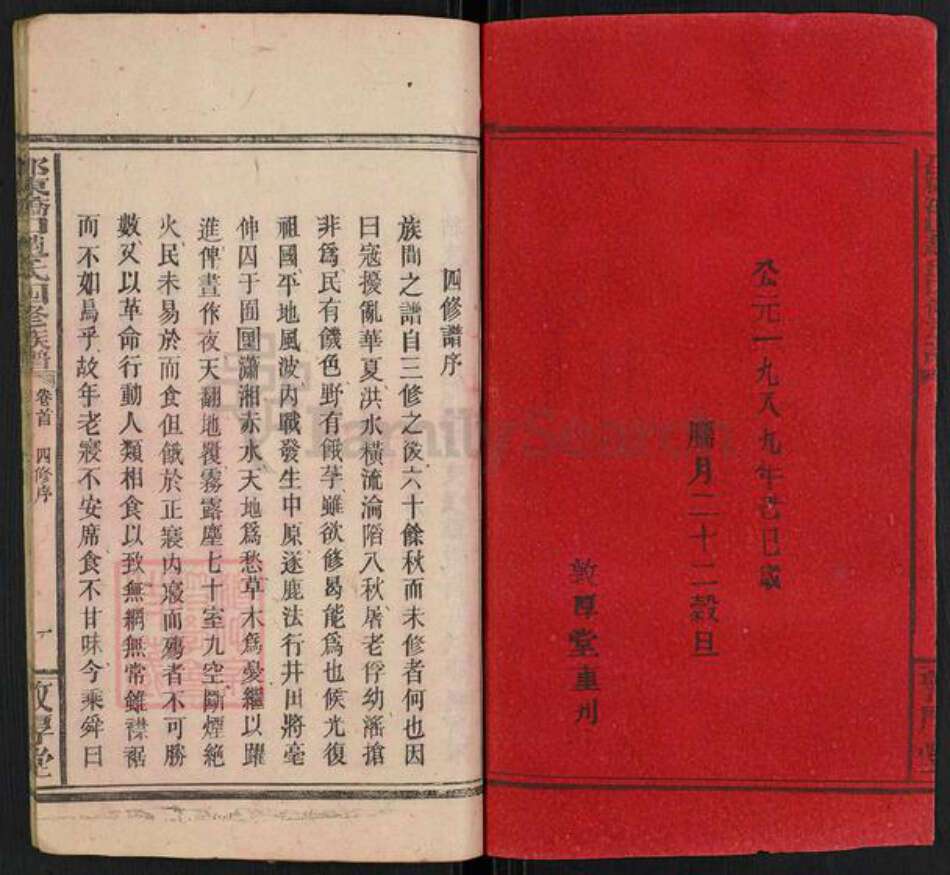 公元一九八九年己巳歲
臘月二十二穀旦
敦厚堂重刊
四修譜序
族間之譜自三修之後六十餘秋而未修者何也因
日寇擾亂華夏洪水橫流淪陷八秋屠老俘幼滛搶
非爲民有饑色野有餓莩雖欲修曷能爲也候光復
祖國平地風波內戰發生中原逐鹿法行井田將毫
伸囚于囹圄瀟湘赤水天地爲愁草木爲憂繼以躍
進俾晝作夜天翻地覆霧露塵七十室九空斷煙絶
火民未易於而食但餓於正寢內寢而殤者不可勝
數又以革命行動人類相食以致無網無常雖襟裾
而不如烏乎故年老寢不安席食不甘味今乘舜日
氏四修族譜
卷首
四修序
敦厚堂
FamilySearch